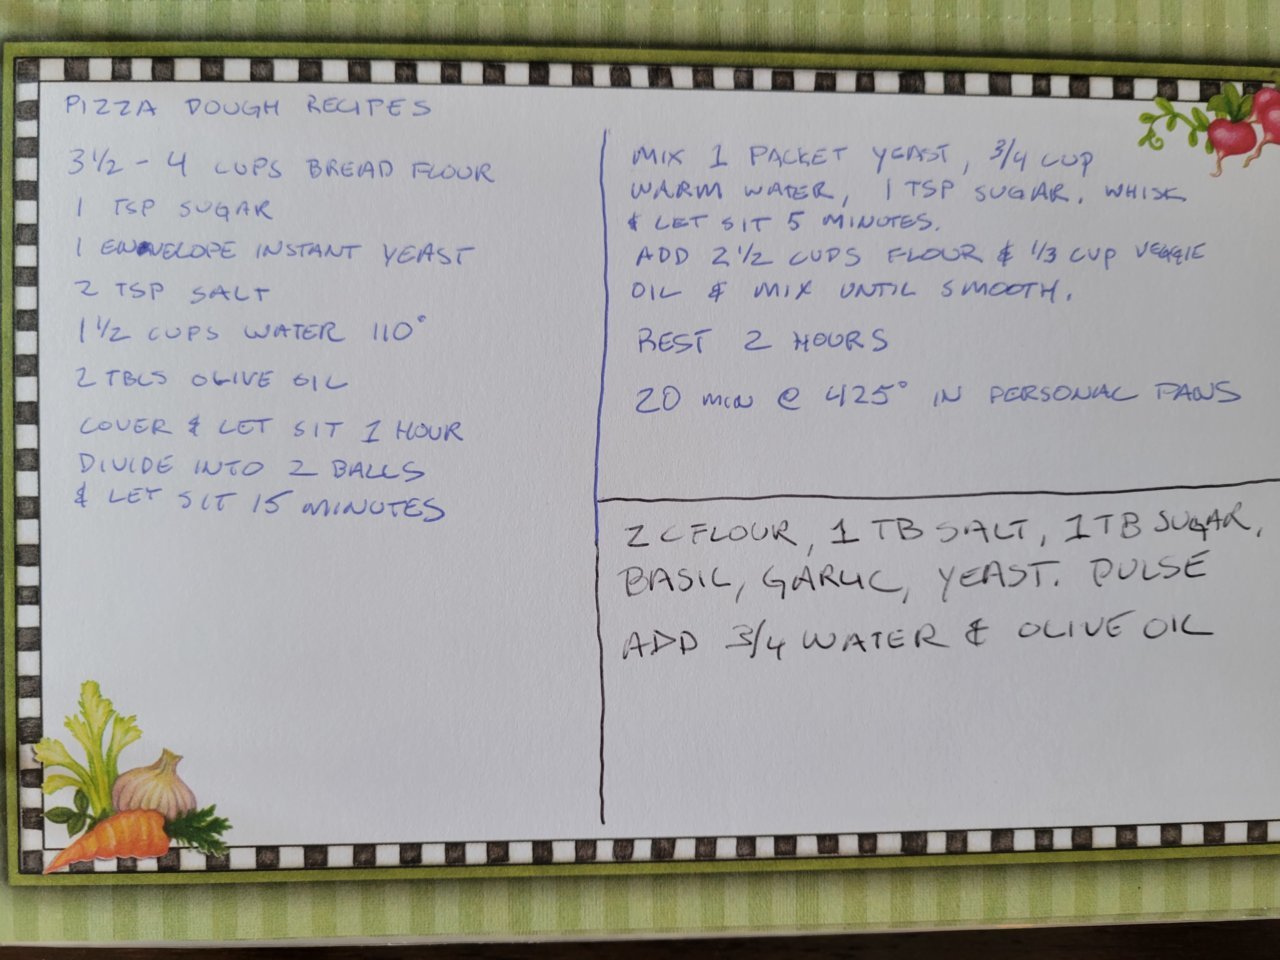 PIZZA DOUGH RECIPES
3 1/2 - 4 CUPS BREAD FLOUR
1 TSP SUGAR
1 ENVELOPE INSTANT YEAST
2 TSP SALT
1 1/2 CUPS WATER 110°
2 TBLS OLIVE OIL
COVER & LET SIT 1 HOUR
DIVIDE INTO 2 BALLS
& LET SIT 15 MINUTES
MIX 1 PACKET YEAST, 3/4 CUP
WARM WATER, 1 TSP SUGAR. WHISK
& LET SIT 5 MINUTES.
ADD 2 1/2 CUPS FLOUR & 1/3 CUP VEGGIE
OIL & MIX UNTIL SMOOTH.
REST 2 HOURS
20 MIN @ 425° IN PERSONAL PANS
2 C FLOUR, 1 TB SALT, 1 TB SUGAR,
BASIL, GARLIC, YEAST. PULSE
ADD 3/4 WATER & OLIVE OIL